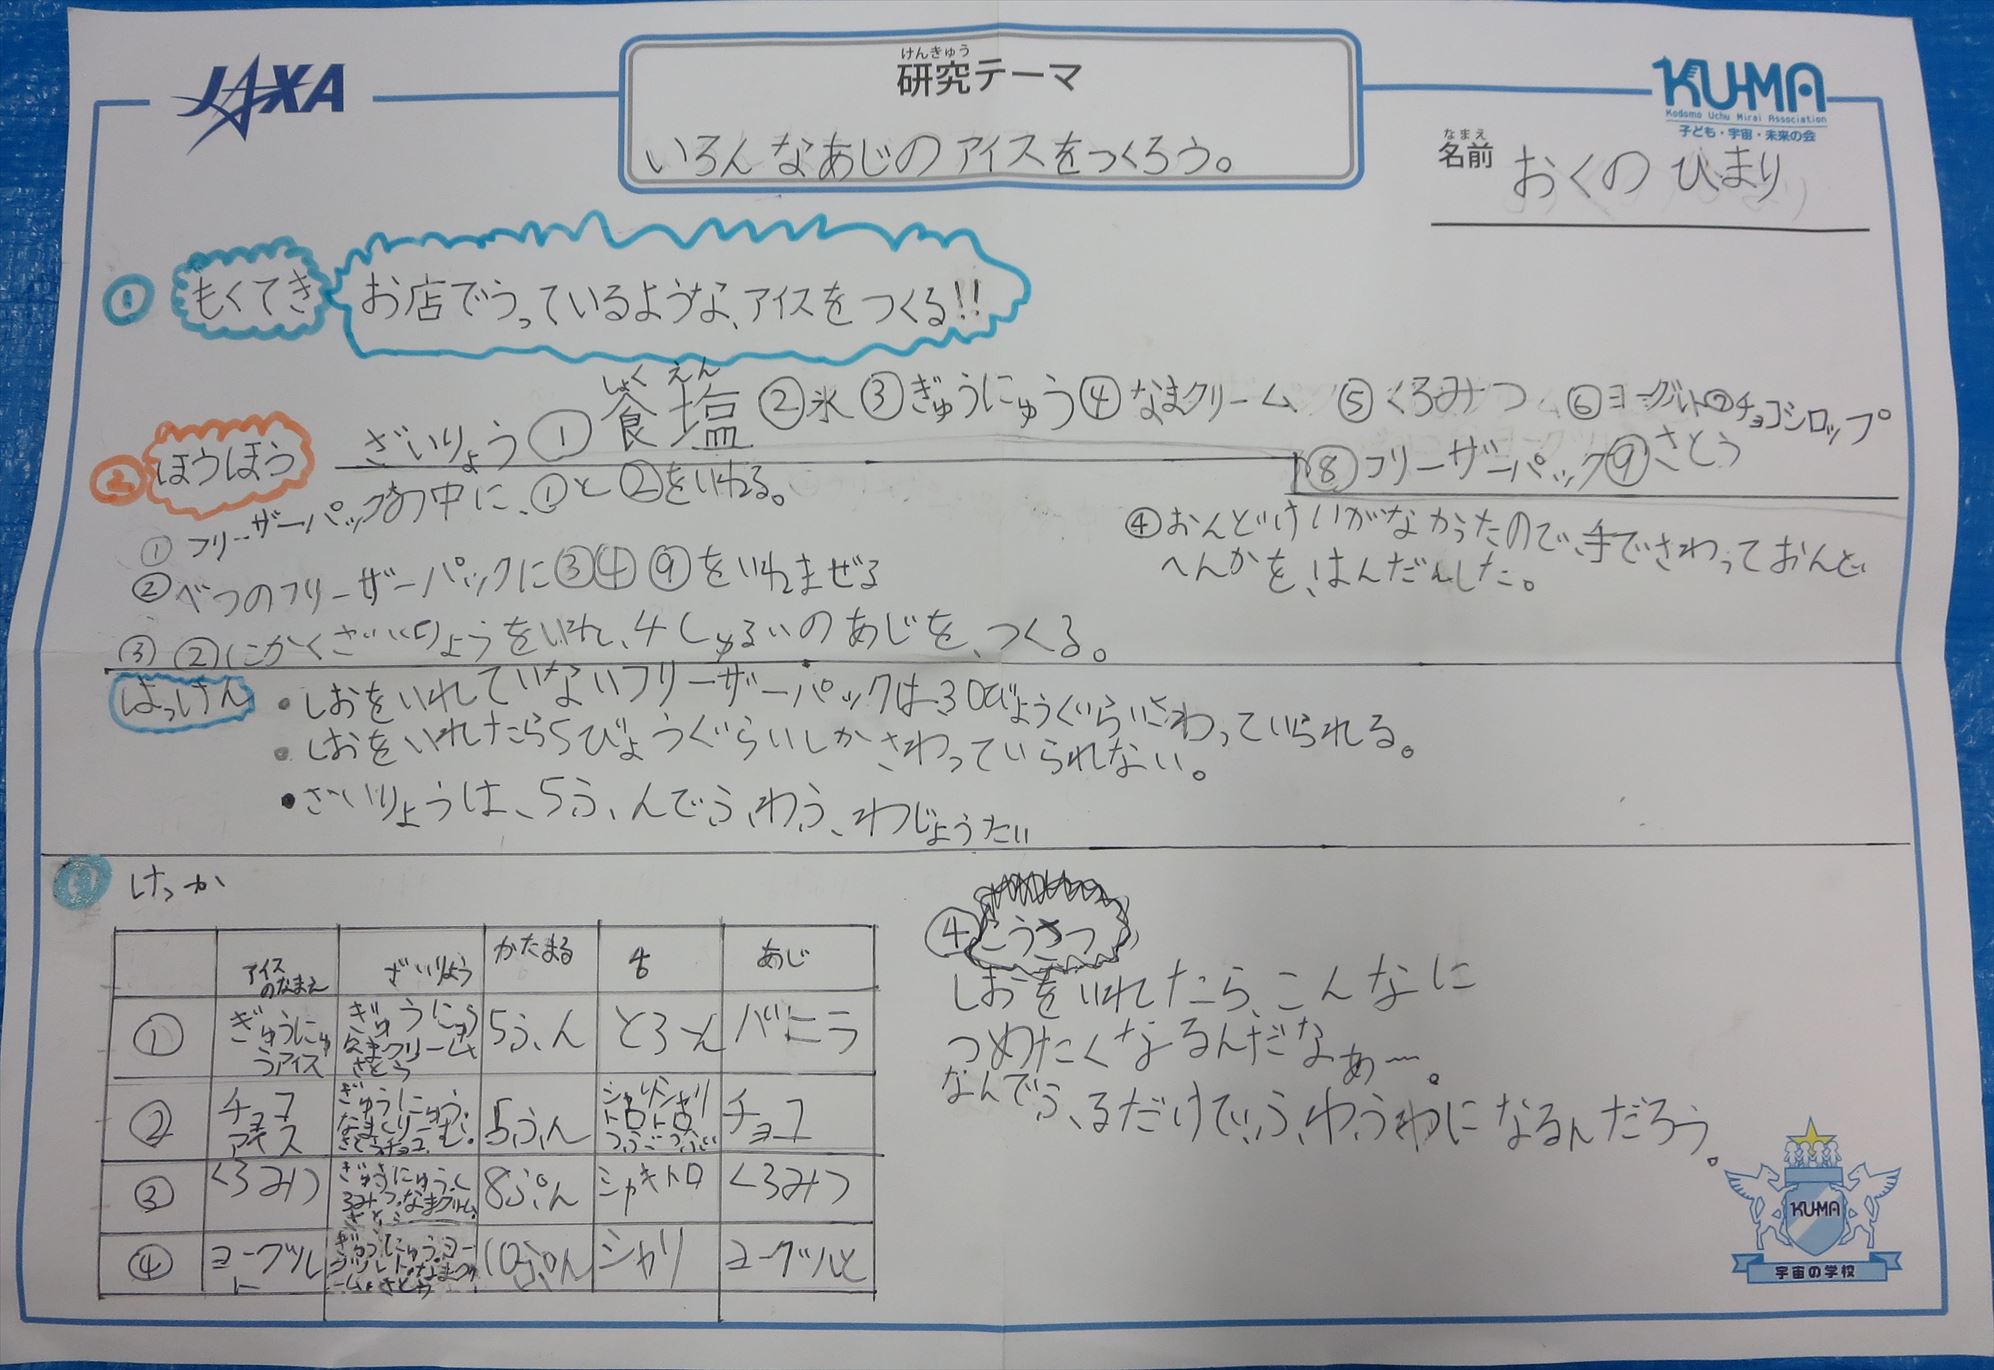 JAXA
けんきゅう
研究テーマ
いろんなあじのアイスをつくろう。
KU-MA
Kodomo Uchu Mirai Association
子ども・宇宙・未来の会
なまえ
名前 おくの ひまり
① もくてき お店でうっているような、アイスをつくる!!
② ほうほう
しょくえん
ざいりょう ①食塩 ②氷 ③ぎゅうにゅう ④なまクリーム ⑤くろみつ ⑥ヨーグルト ⑦チョコシロップ
⑧フリーザーパック ⑨さとう
① フリーザーパックの中に、①と②をいれる。
② べつのフリーザーパックに③④⑨をいれまぜる
③ ②にかくざいりょうをいれ、4しゅるいのあじを、つくる。
④ おんどけいがなかったので、手でさわっておんど
へんかを、はんだんした。
はっけん
・しおをいれていないフリーザーパックは、30びょうぐらいさわっていられる。
・しおをいれたら5びょうぐらいしかさわっていられない。
・ざいりょうは、5ふ、んでふ、わふ、わじょうたい
③ けっか
アイスのなまえ ざいりょう かたまる あじ
① ぎゅうにゅうアイス ぎゅうにゅうなまクリームさとう 5ふ、ん とろーん バニラ
② チョコアイス ぎゅうにゅう、なまくりーむ、さとうチョコ 5ふ、ん シャリシャリトロトロつぶつぶ チョコ
③ くろみつ ぎゅうにゅう、くろみつ、なまクリーム、さとう 8ぷ、ん シャキトロ くろみつ
④ ヨーグルト ぎゅうにゅうヨーグルト、なまクリーム、さとう 10ぷ、ん シャリ ヨーグルと
④ こうさつ
しおをいれたら、こんなに
つめたくなるんだなぁー。
なんでふ、るだけで、ふ、わふ、わになるんだろう。
KU-MA
宇宙の学校